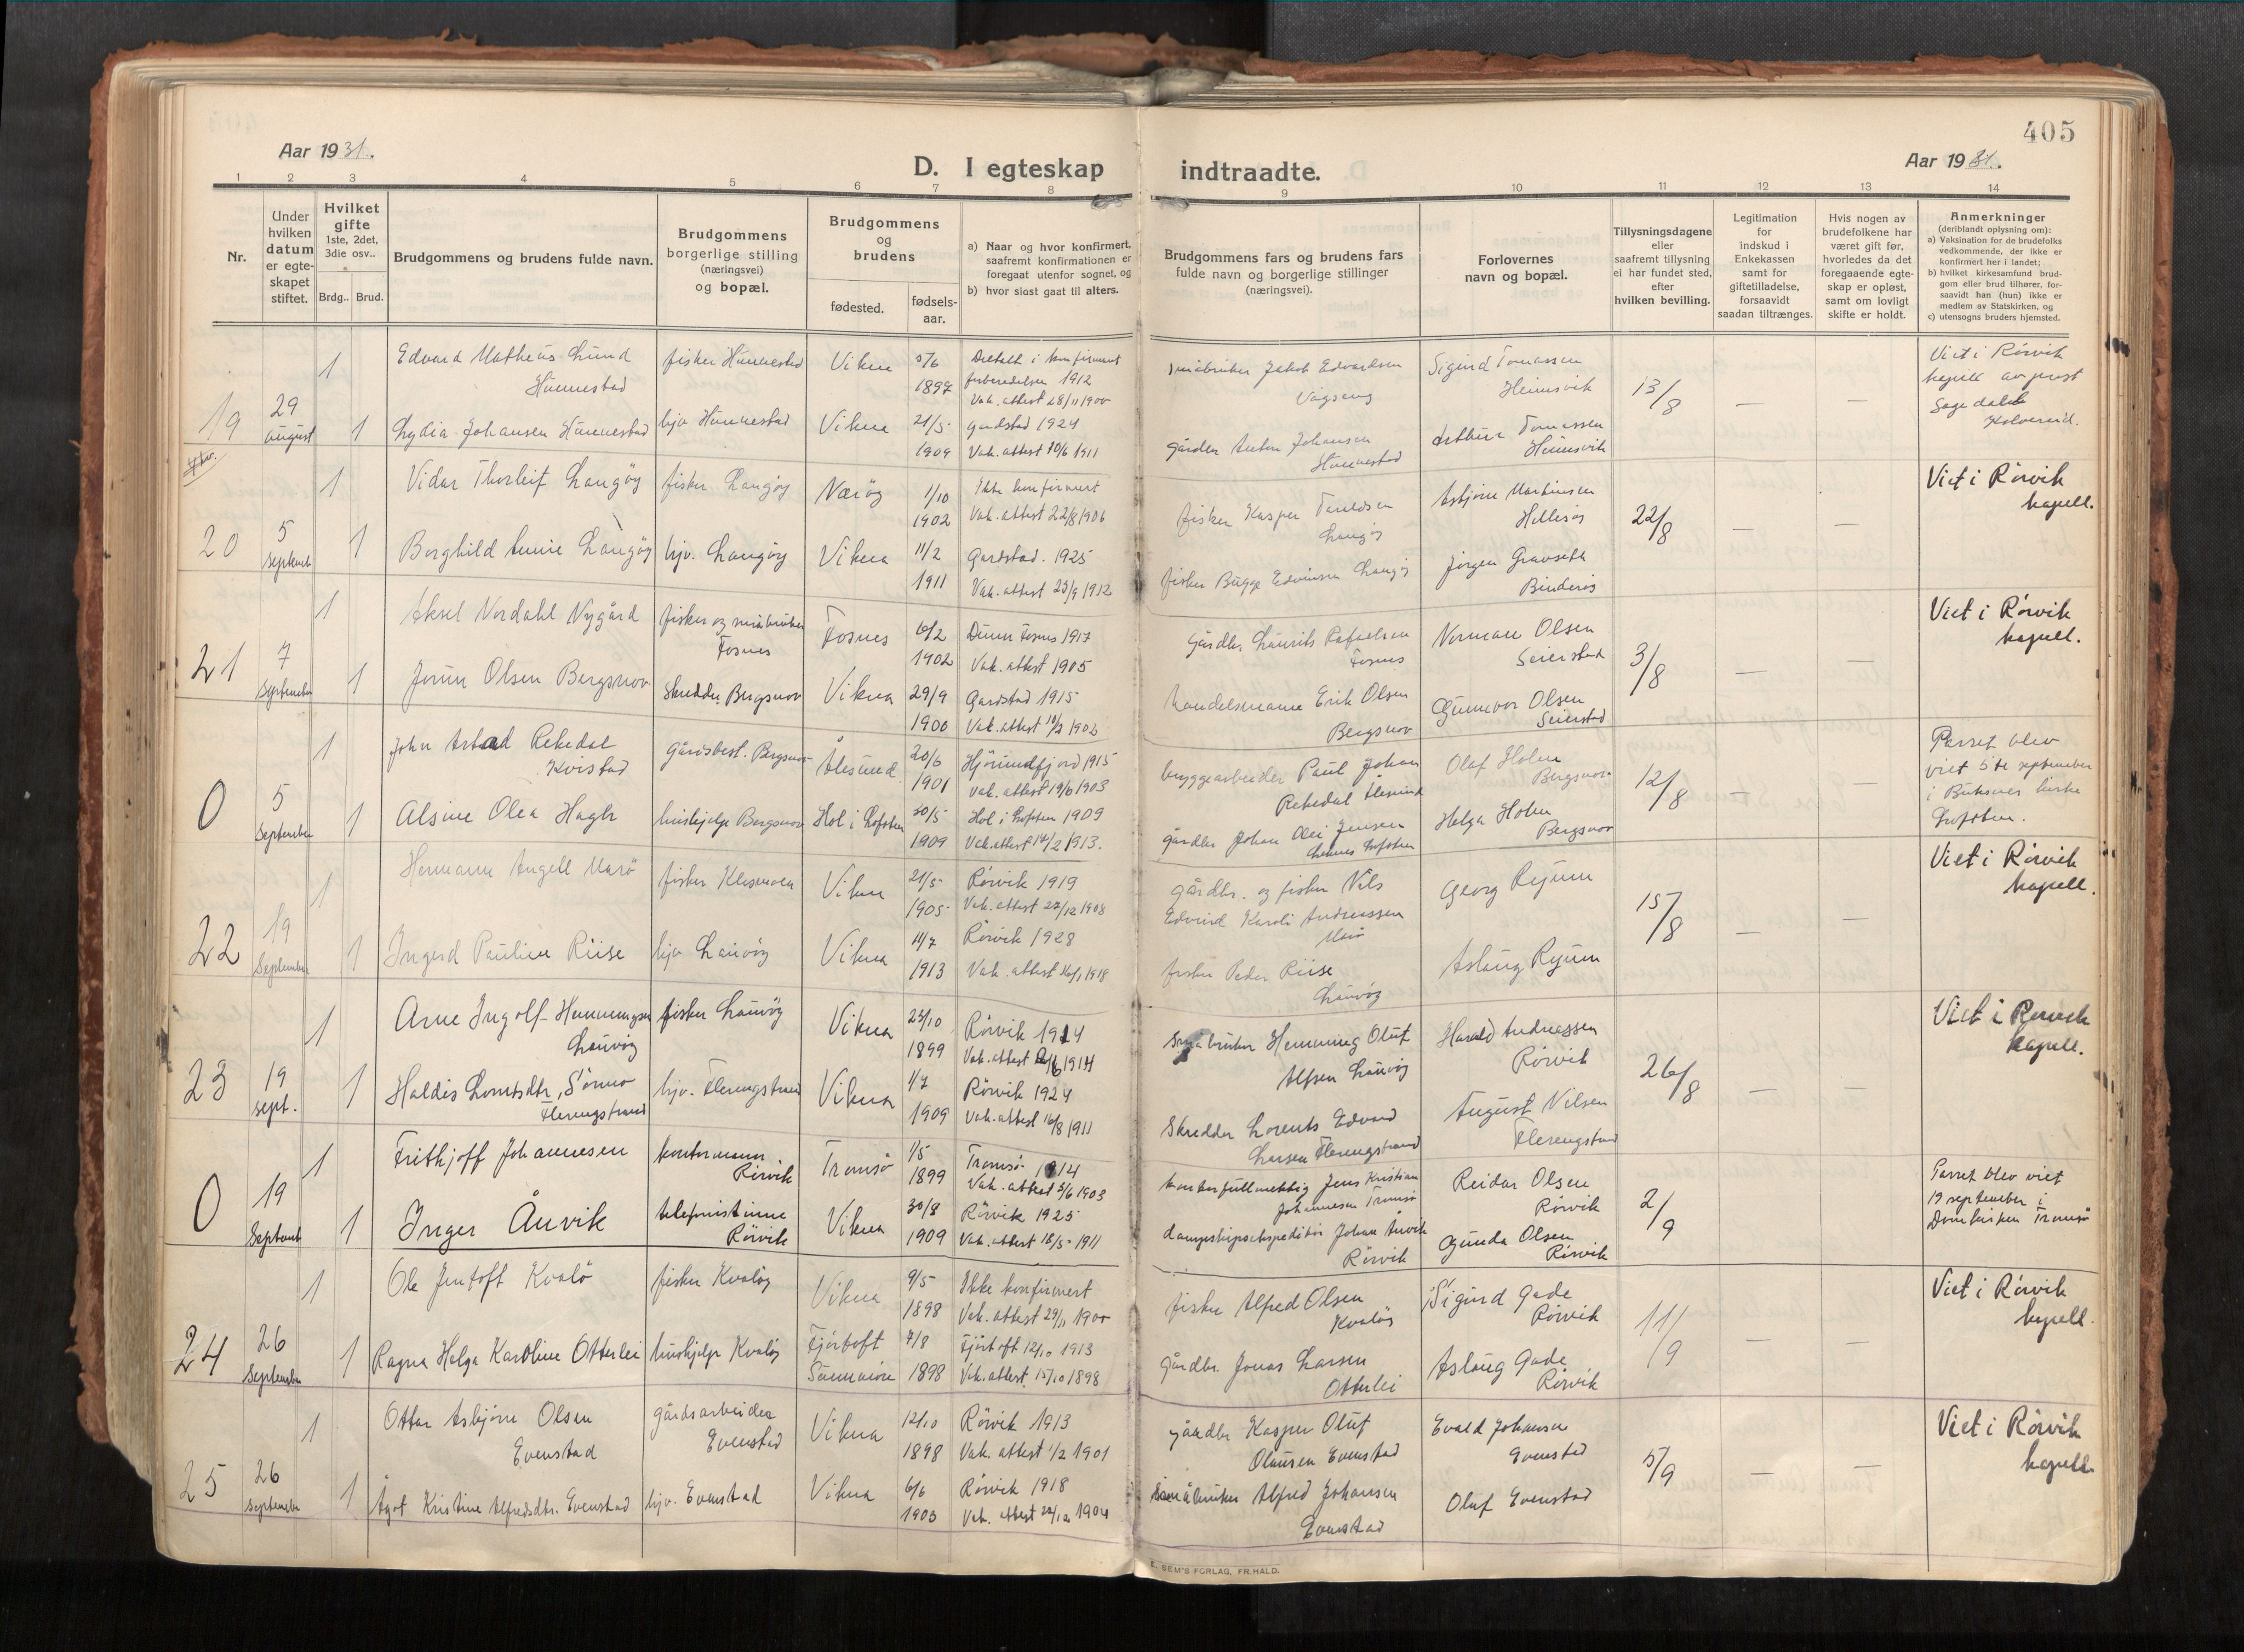 405
Aar 1931.
D. I egteskap indtraadte.
Aar 1931.
1 2 3 4 5 6 7 8 9 10 11 12 13 14
Nr.
Under hvilken datum er egteskapet stiftet.
Hvilket gifte 1ste, 2det, 3die osv..
Brdg.. Brud.
Brudgommens og brudens fulde navn.
Brudgommens borgerlige stilling (næringsvei) og bopæl.
Brudgommens og brudens
fødested.
fødsels-aar.
a) Naar og hvor konfirmert, saafremt konfirmationen er foregaat utenfor sognet, og
b) hvor sidst gaat til alters.
Brudgommens fars og brudens fars fulde navn og borgerlige stillinger (næringsvei).
Forlovernes navn og bopæl.
Tillysningsdagene eller saafremt tillysning ei har fundet sted, efter hvilken bevilling.
Legitimation for indskud i Enkekassen samt for giftetilladelse, forsaavidt saadan tiltrænges.
Hvis nogen av brudefolkene har været gift før, hvorledes da det foregaaende egteskap er opløst, samt om lovligt skifte er holdt.
Anmerkninger (deriblandt oplysning om):
a) Vaksination for de brudefolks vedkommende, der ikke er konfirmert her i landet;
b) hvilket kirkesamfund brudgom eller brud tilhører, forsaavidt han (hun) ikke er medlem av Statskirken, og
c) utensogns bruders hjemsted.
19
29 august
1
Edvard Matheus Lund
Hunnestad
fisker Hunnestad
Vikna
1897
Deltatt i konfirmant
forberedelsen 1912
Vak. attest 28/11 1900
småbruker Jakob Edvardsen
Vågseng
Sigurd Tomassen
Heimsvik
13/8
Viet i Rørvik
kapell av prost
Kolvereid.
1
Lydia Johansen Hunnestad
hjv Hunnestad
Vikna
21/5
1909
Gardstad 1924
Vak. attest 10/6 1911
Anton Johansen
Hunnestad
Arthur Tomassen
Heimsvik
20
5 septemb
1
Vidar Thorleif Langøy
fisker Langøy
Nærøy
1/10
1902
Ikke konfirmert
Vak. attest 22/8 1906
fisker Kasper
Langøy
Asbjørn Martinsen
22/8
Viet i Rørvik
kapell.
1
Borghild Annie Langøy
hjv. Langøy
Vikna
11/2
1911
Gardstad. 1925
Vak. attest 25/9 1912
fisker Bugge Edvinsen Langøy
Jørgen Gravseth
Binderøs
21
7 September
1
Aksel Nordahl Nygård
fisker og småbruker
Fosnes
Fosnes
1902
Fosnes 1917
Vak. attest 1905
Gårdbr Laurits Rafaelsen
Fosnes
Norman Olsen
Seierstad
3/8
Viet i Rørvik
kapell.
1
Jorun Olsen Bergsnov
Skredder Bergsnov
Vikna
29/9
1900
Gardstad 1915
Vak. attest 10/2 1902
handelsmann Erik Olsen
Bergsnov
Gunnvor Olsen
Seierstad
0
5 September
1
Rekedal
Kvistad
Gårdsbest. Bergsnov
Ålesund
20/6
1901
Hjørundfjord 1915
Vak. attest 19/6 1903
bryggearbeider Paul Johan
Rekedal Ålesund
Olaf Holm
Bergsnov
12/8
Parret blev
viet 5te september
i Buksnes kirke
Lofoten.
1
Alsine Olea Hagh
hushjelp Bergsnov
Hol i Lofoten
30/5
1909
Hol i Lofoten 1909
Vak. attest 14/2 1913.
gårdbr Johan Olai Jensen
Lofoten
Helga Holm
Bergsnov
22
19 September
1
Hermann Angell Marø
fisker
Vikna
21/5
1905
Rørvik 1919
Vak. attest 27/12 1908
gårdbr. og fisker Nils
Edvind Karoli Andreassen
Marø
Georg Ryum
15/8
Viet i Rørvik
kapell.
1
Ingerd Pauline Riise
hjv Lauvøy
Vikna
11/7
1913
Rørvik 1928
Vak. attest 16/1 1918
fisker Peder Riise
Lauvøy
Aslaug Ryum
23
19 sept.
1
Arne Ingolf Henningsen
Lauvøy
fisker Lauvøy
Vikna
23/10
1899
Rørvik 1914
Vak. attest 1914
Småbruker Henning Oluf
Alfsen Lauvøy
Harald Andreassen
Rørvik
26/8
Viet i Rørvik
kapell.
1
Haldis Lorntsdtr, Sørmo
Flerengstrand
hjv. Flerengstrand
Vikna
1/7
1909
Rørvik 1924
Vak. attest 16/8 1911
Skredder Lorents Edvard
Larsen Flerengstrand
August Nilsen
Flerengstrand
0
19 Septemb
1
Frithjoff Johannesen
kontormann
Rørvik
Tromsø
1/5
1899
Tromsø 1914
Vak. attest 5/6 1903
kontorfullmektig Jens Kristian
Johannesen Tromsø
Reidar Olsen
Rørvik
2/9
Parret blev viet
19 september i
Domkirken Tromsø
1
Inger Åuvik
telefonistinne
Rørvik
Vikna
30/8
1909
Rørvik 1925
Vak. attest 18/5 1911
dampskipsekspeditør Johan Åuvik
Rørvik
Gunda Olsen
Rørvik
24
26 September
1
Ole Jentoft Kvaløy
fisker Kvaløy
Vikna
9/5
1898
Ikke konfirmert
Vak. attest 29/11 1900
fisker Alfred Olsen
Kvaløy
Sigurd Gade
Rørvik
11/9
Viet i Rørvik
kapell.
1
Ragna Helga Karoline Otterlei
hushjelp Kvaløy
Fjørtoft
Sunnmøre
7/8
1898
Fjørtoft 12/10 1913
Vak. attest 15/10 1898
Gårdbr. Jonas Larsen
Otterlei
Aslaug Gade
Rørvik
25
26 September
1
Ottar Asbjørn Olsen
Evenstad
Gårdsarbeider
Evenstad
Vikna
12/10
1898
Rørvik 1913
Vak. attest 1/2 1901
gårdbr Kasper Oluf
Olausen Evenstad
Evald Johansen
Evenstad
5/9
Viet i Rørvik
kapell.
1
Ågot Kristine Alfredsdtr. Evenstad
hjv. Evenstad
Vikna
6/6
1903
Rørvik 1918
Vak. attest 22/12 1904
Småbruker Alfred Johansen
Evenstad
Oluf Evenstad
E. SEM'S FORLAG, FR.HALD.